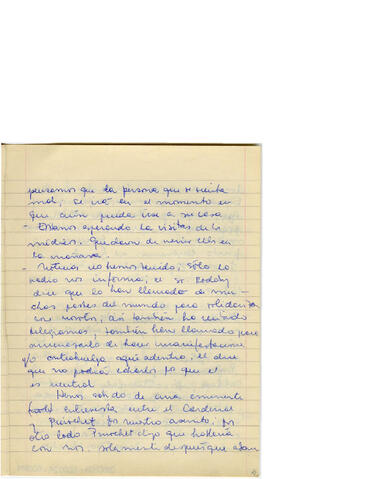 pensamos que la persona que se sienta
mal, se vá en el momento en
que aún pueda irse a su casa
- Estamos esperando la visitas de los
médicos. Quedaron de venir en
la mañana.
- Noticias no hemos tenido, Sólo la
radio nos informa, el Sr
dice que lo han llamado de mu-
chas partes del mundo para solidarizar
con nosotros, así también ha recibido
telegramas, también han llamado para
amenazarlo de hacer manifestaciones
y/o aquí adentro, él dice
que no podrá echarlos por que el
es neutral
Hemos sabido de una
entrevista entre el Cardenal
y Pinochet por nuestro asunto, por
otro lado. Pinochet dijo que hablaría
con nos. solamente después que